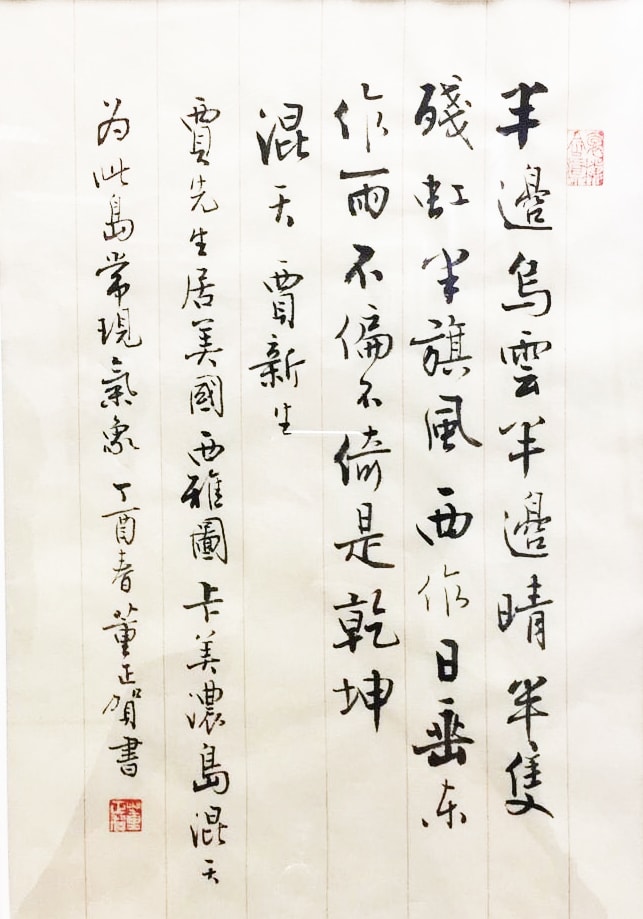 半邊烏雲半邊晴半隻
殘虹半旗風西作日垂東
作雨不偏不倚是乾坤
混天 賈新生
賈先生居美國西雅圖卡美濃島混天
為此島常現氣象 丁酉春董正賀書